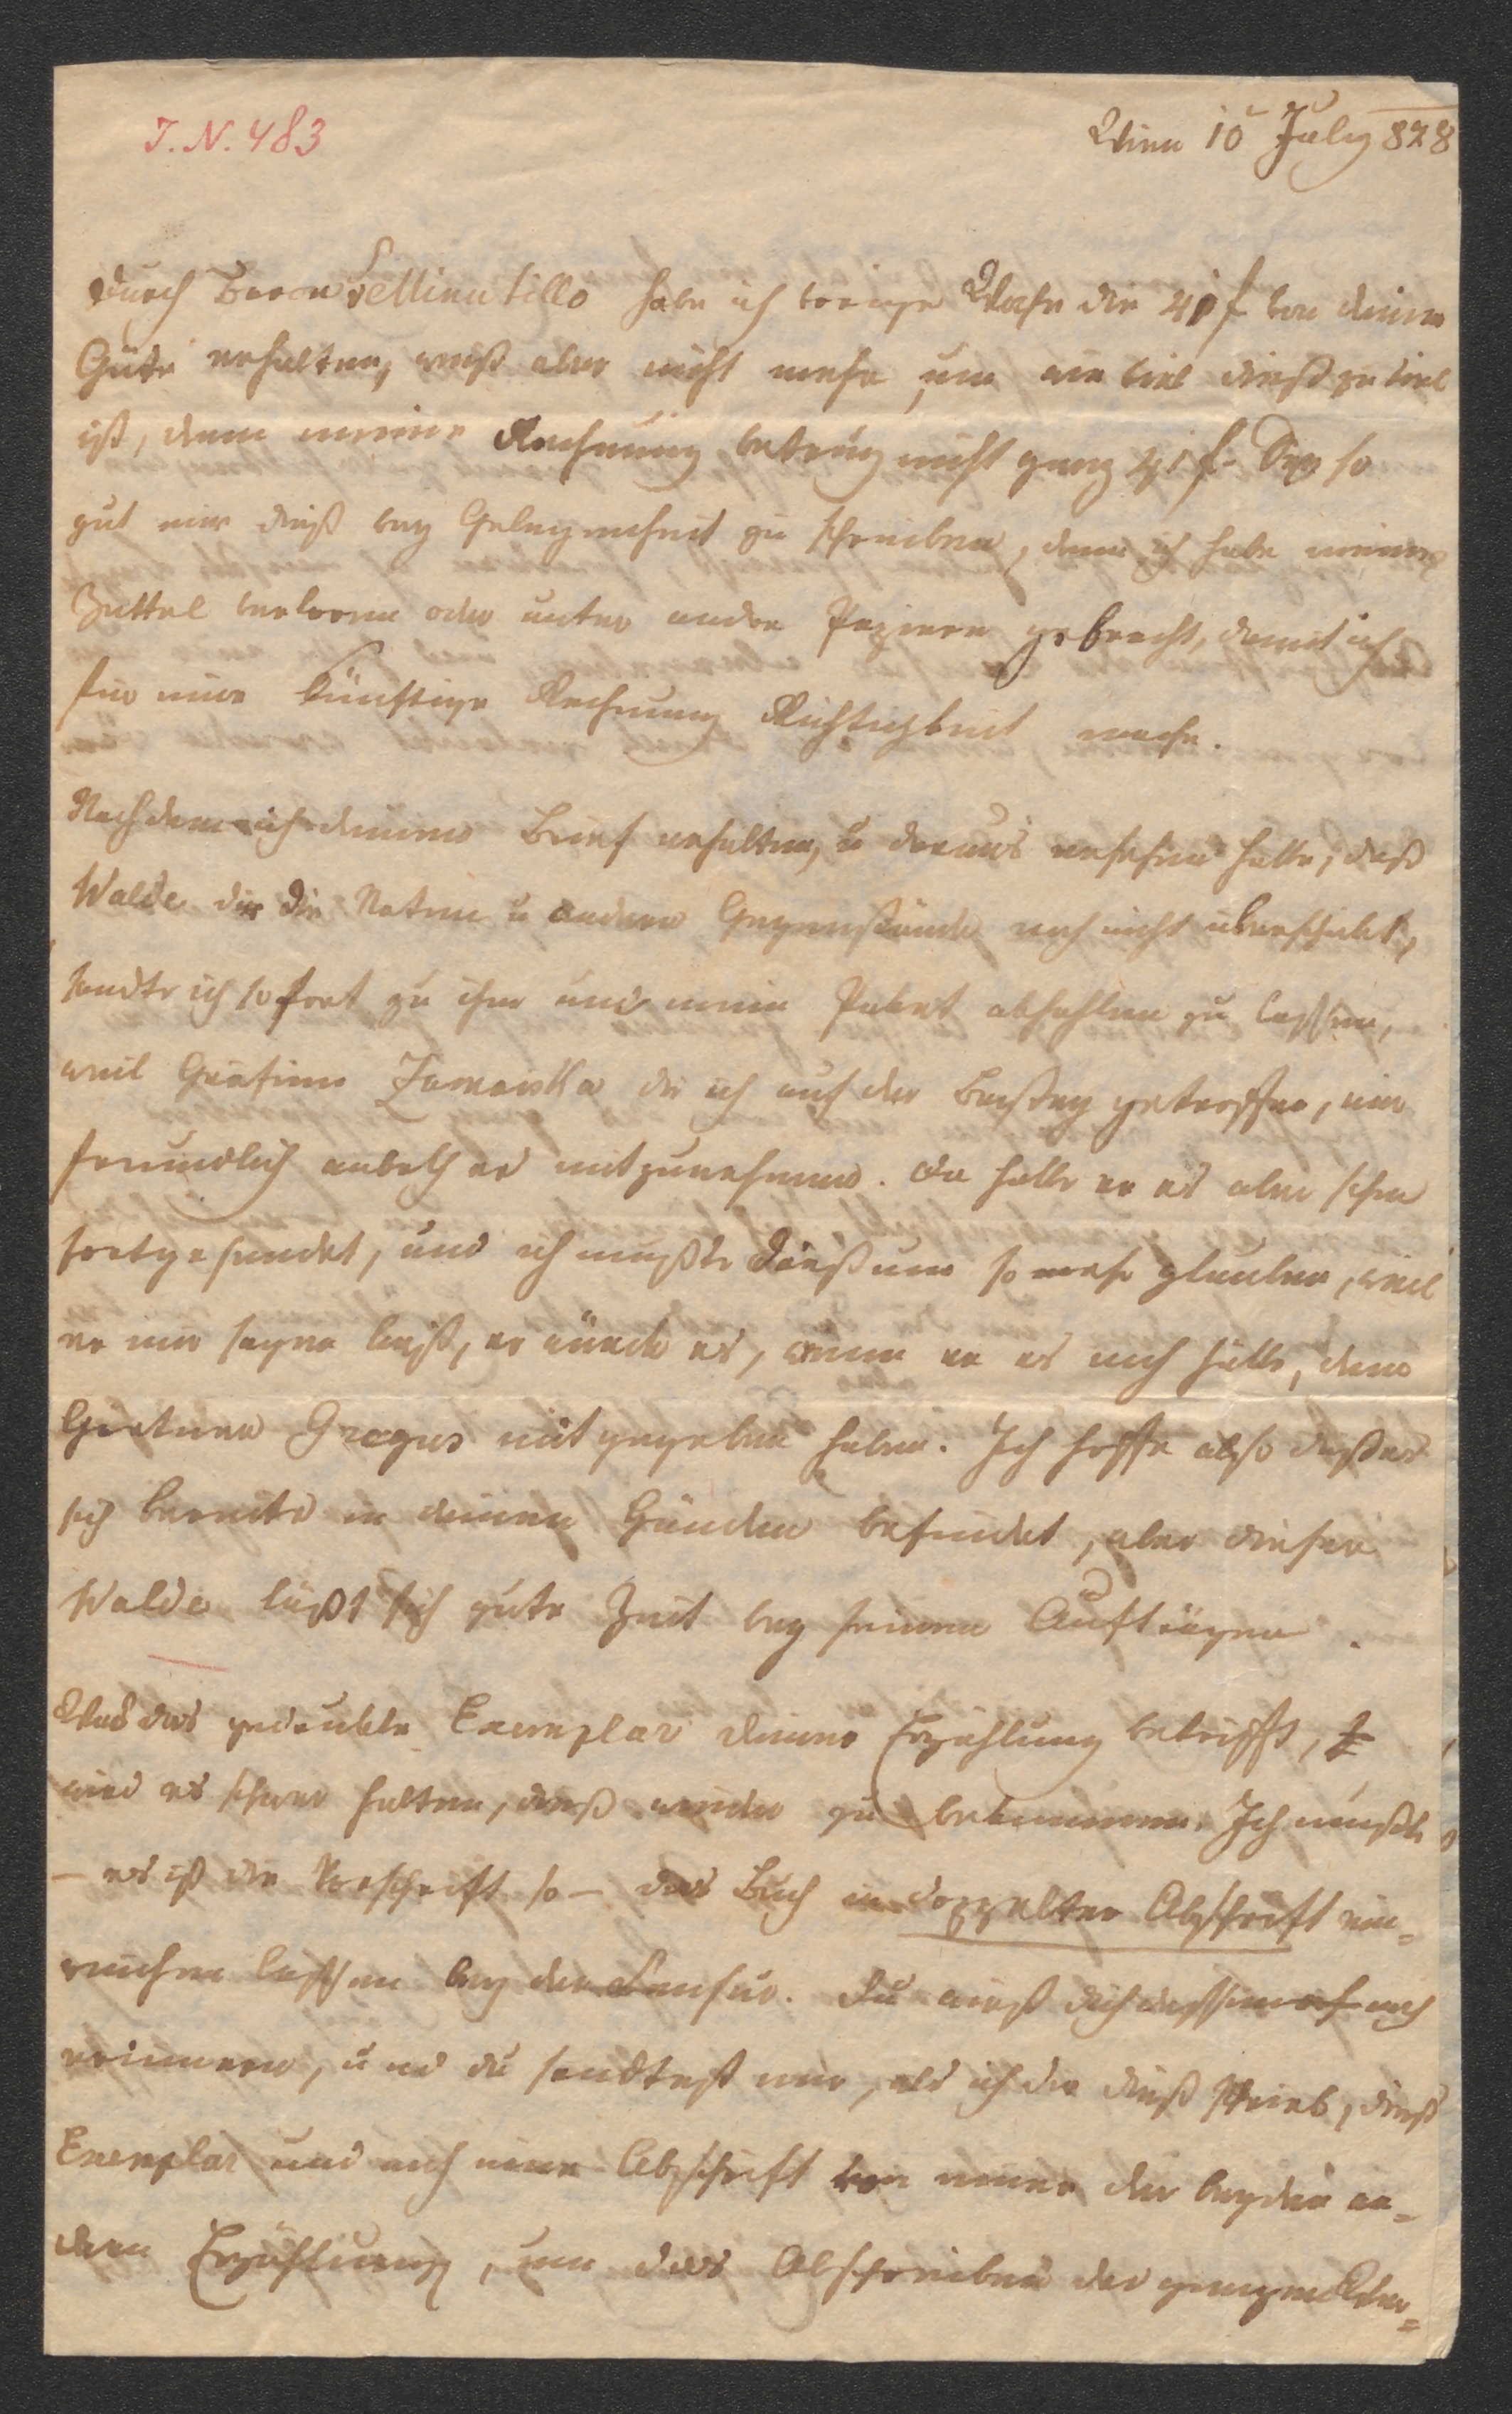 I. N. 483
Wien 10 July 828
Durch Baron habe ich vorige Woche die 41 f von deiner
Güte erhalten, weiß aber nicht mehr, um wie viel dieß zu viel
ist, denn meine Rechnung betrug nicht ganz 41 f. Sey so
gut mir dieß bey Gelegenheit zu schreiben, denn ich habe meinen
Zettel verloren oder unter andre Papiere gebracht, damit ich
für eine künftige Rechnung Richtigkeit mache.
Nachdem ich deinen Brief erhalten, u daraus ersehen hatte, daß
Walde dir die Noten u andern Gegenstände noch nicht überschickt,
sandte ich sofort zu ihm und mein Paket abhohlen zu lassen,
weil Gräfinn Zamoiska die ich auf der Bastey getroffen, sich
freundlich anboth es mitzunehmen. Da hatte er es aber schon
fortgesendet, und ich mußte dieß um so mehr glauben, weil
er mir sagen ließ, er würde es, wenn er es noch hätte, dem
Gärtner Gregus mitgegeben haben. Ich hoffe also daß es
sich bereits in deinen Händen befindet, aber dieser
Walde läßt sich gute Zeit bey seinen Aufträgen.
Was das gedruckte Exemplar deiner Erzählung betrifft,
wird es schwer halten, dieß wieder zu bekommen. Ich mußte
– es ist die Vorschrift so – das Buch in doppelter Abschrift ein=
reichen lassen bey der Censur. Du wirst dich dessen noch
erinnern, und du sandtest mir, als ich dir dieß schrieb, dieß
Exemplar und noch eine Abschrift von einer der beyden an=
dern Erzählung, um das Abschreiben des ganzen